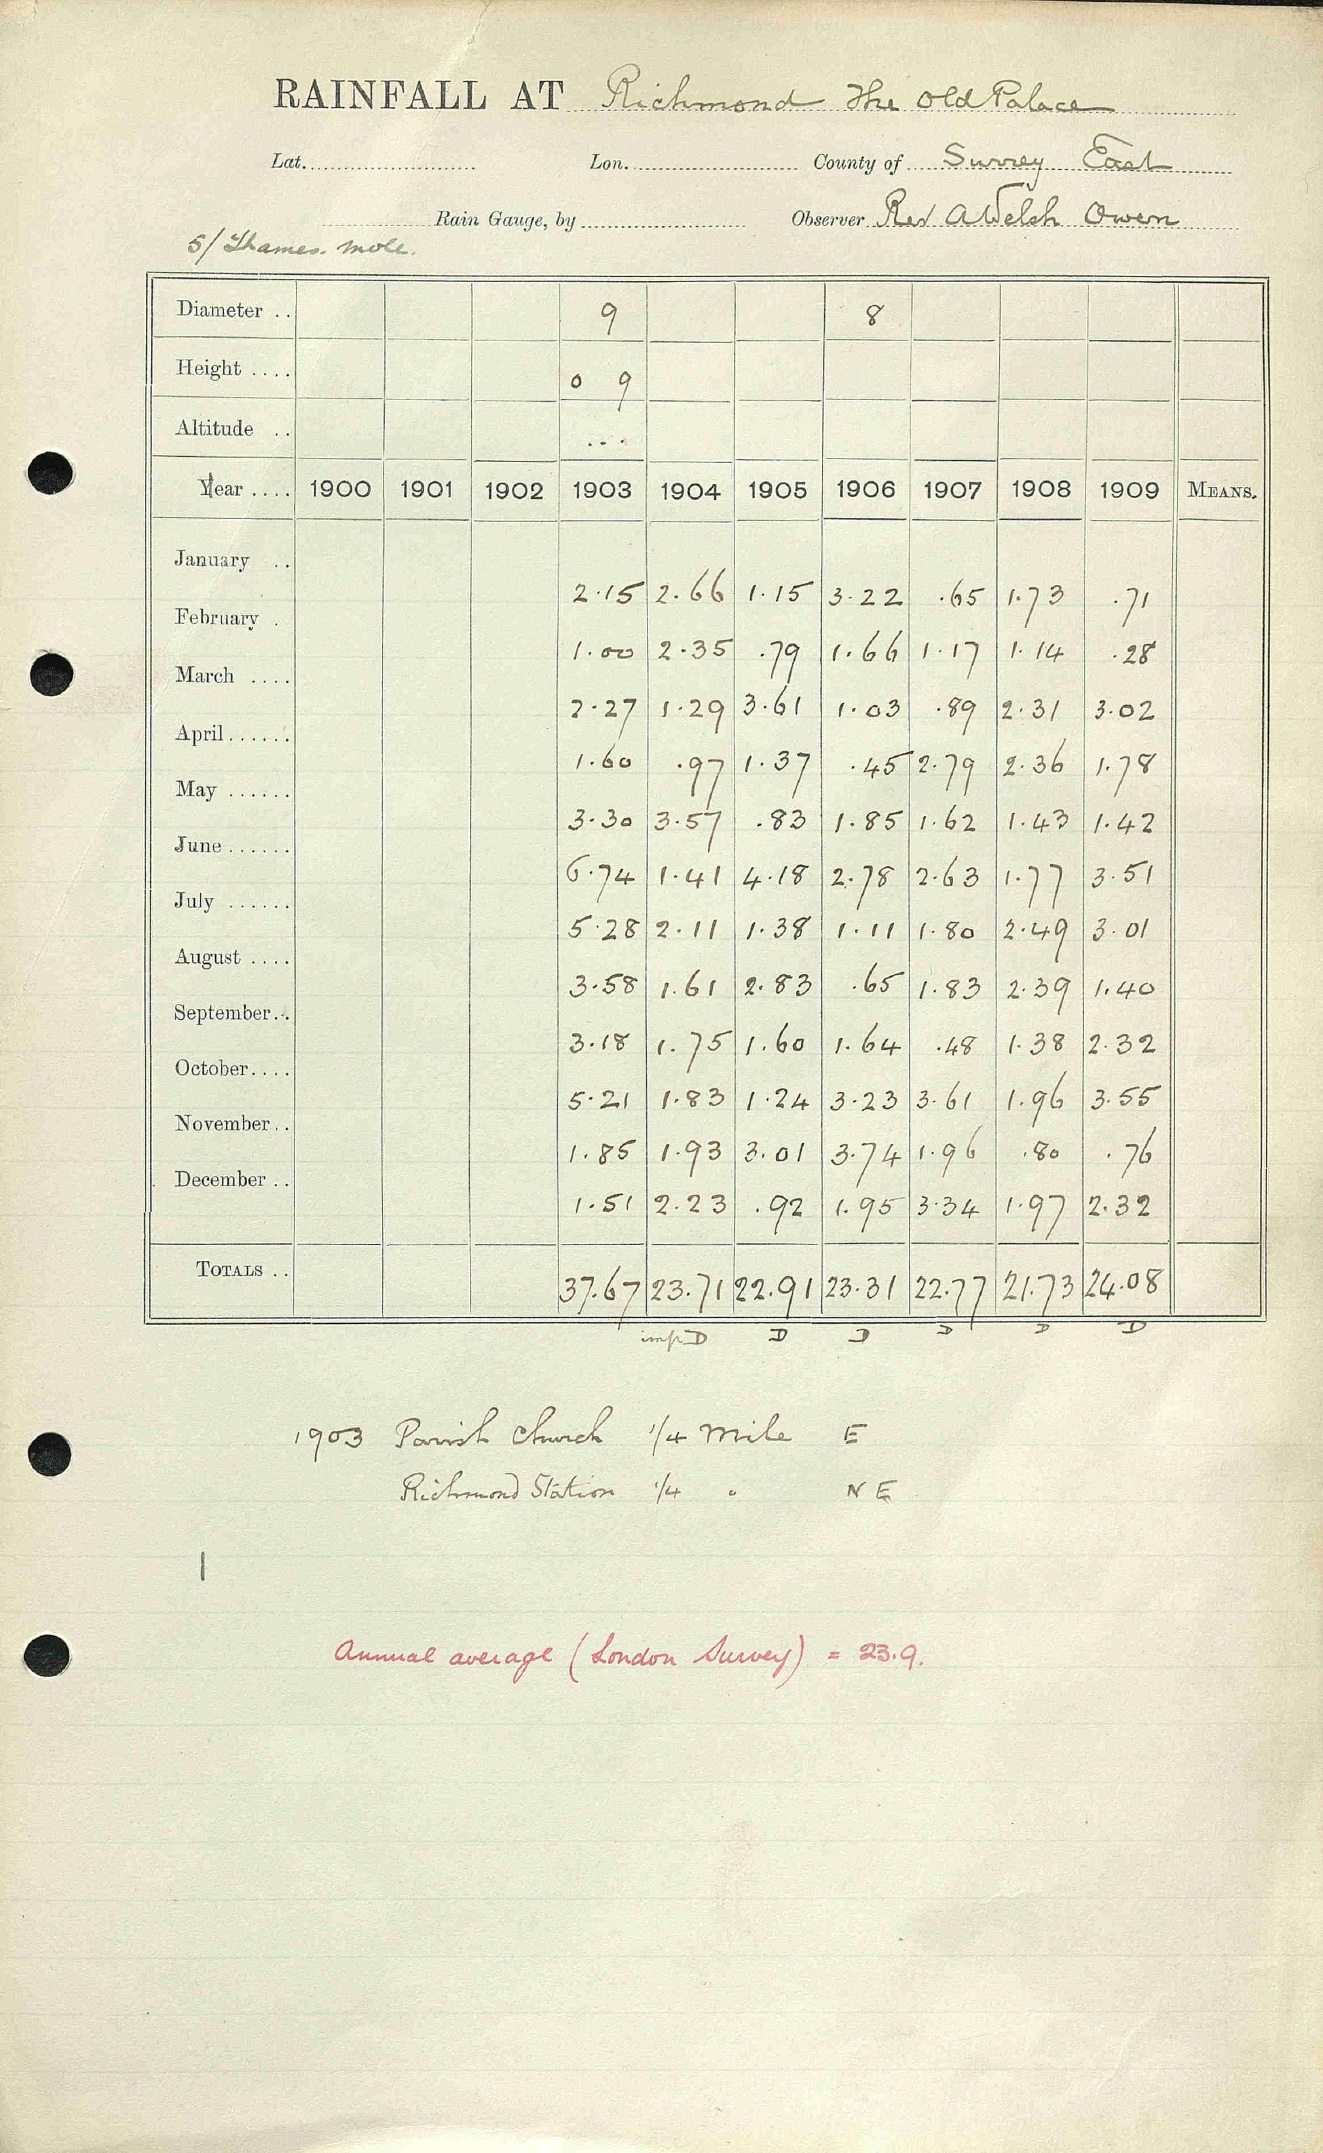 RAINFALL AT Richmond The Old Palace
Lat. Lon. County of Surrey East
Rain Gauge, by Observer Rev A Welsh Owen
5/ Thames. Mole.
Diameter .. 9 8
Height .... 0 9
Altitude .. ...
Year .... 1900 1901 1902 1903 1904 1905 1906 1907 1908 1909 MEANS.
January .. 2.15 2.66 1.15 3.22 .65 1.73 .71
February . 1.00 2.35 .79 1.66 1.17 1.14 .28
March .... 2.27 1.29 3.61 1.03 .89 2.31 3.02
April...... 1.60 .97 1.37 .45 2.79 2.36 1.78
May ...... 3.30 3.57 .83 1.85 1.62 1.43 1.42
June ...... 6.74 1.41 4.18 2.78 2.63 1.77 3.51
July ...... 5.28 2.11 1.38 1.11 1.80 2.49 3.01
August .... 3.58 1.61 2.83 .65 1.83 2.39 1.40
September... 3.18 1.75 1.60 1.64 .48 1.38 2.32
October.... 5.21 1.83 1.24 3.23 3.61 1.96 3.55
November .. 1.85 1.93 3.01 3.74 1.96 .80 .76
December .. 1.51 2.23 .92 1.95 3.34 1.97 2.32
TOTALS .. 37.67 23.71 22.91 23.31 22.77 21.73 24.08
imp D D D D D D
1903 Parish Church 1/4 Mile E
Richmond Station 1/4 " N E
Annual average (London Survey) = 23.9.